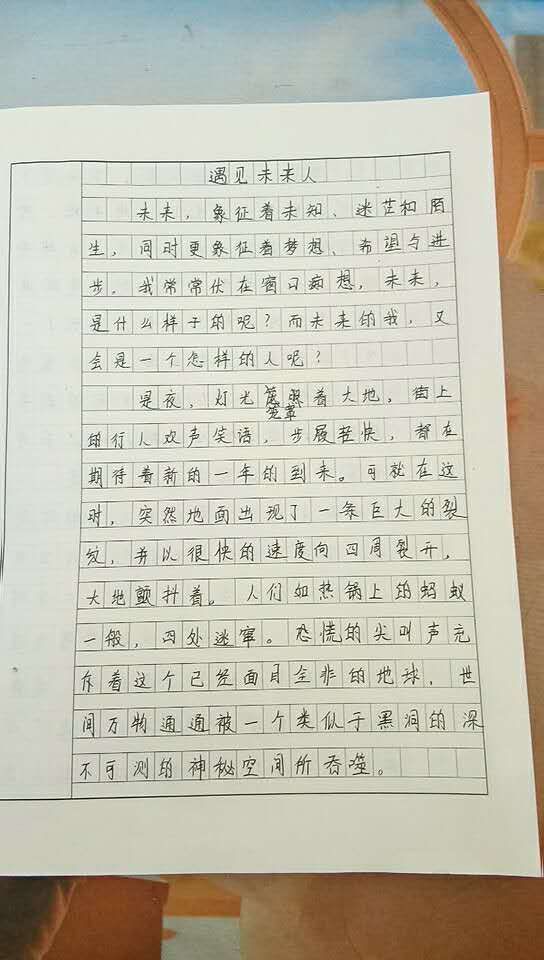 遇见未来人
未来，象征着未知、迷茫和陌
生，同时更象征着梦想、希望与进
步。我常常伏在窗口痴想，未来，
是什么样子的呢？而未来的我，又
会是一个怎样的人呢？
是夜，灯光笼罩着大地，街上
的行人欢声笑语，步履轻快，都在
期待着新的一年的到来。可就在这
时，突然地面出现了一条巨大的裂
纹，并以很快的速度向四周裂开，
大地颤抖着。人们如热锅上的蚂蚁
一般，四处逃窜。恐慌的尖叫声充
斥着这个已经面目全非的地球，世
间万物通通被一个类似于黑洞的深
不可测的神秘空间所吞噬。